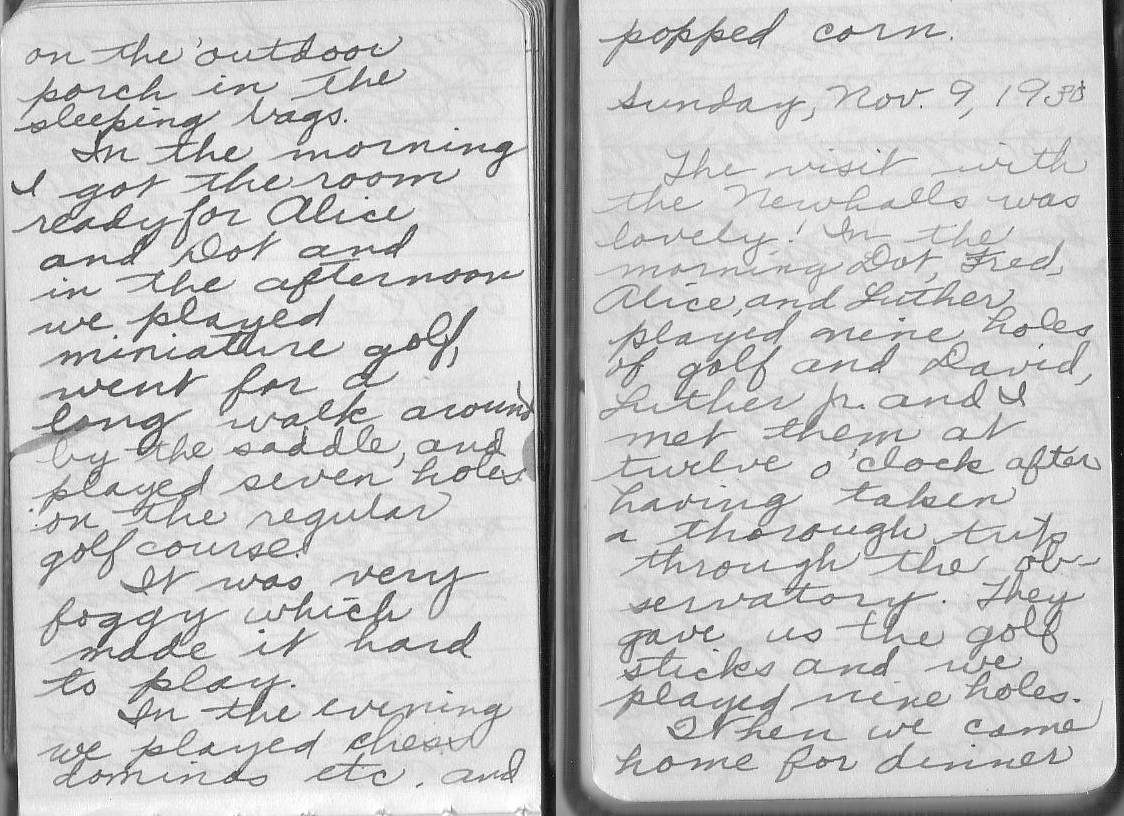 on the outdoor
porch in the
sleeping bags.
In the morning
I got the room
ready for Alice
and Dot and
in the afternoon
we played
miniature golf,
went for a
long walk around
by the saddle, and
played seven holes
on the regular
golf course.
It was very
foggy which
made it hard
to play.
In the evening
we played chess
dominos etc. and
popped corn.
Sunday, Nov. 9, 1930
The visit with
the Newhalls was
lovely! In the
morning Dot, Fred,
Alice, and Luther
played nine holes
of golf and David,
Luther jr. and I
met them at
twelve o'clock after
having taken
a thorough trip
through the ob-
servatory. They
gave us the golf
sticks and we
played nine holes.
When we came
home for dinner